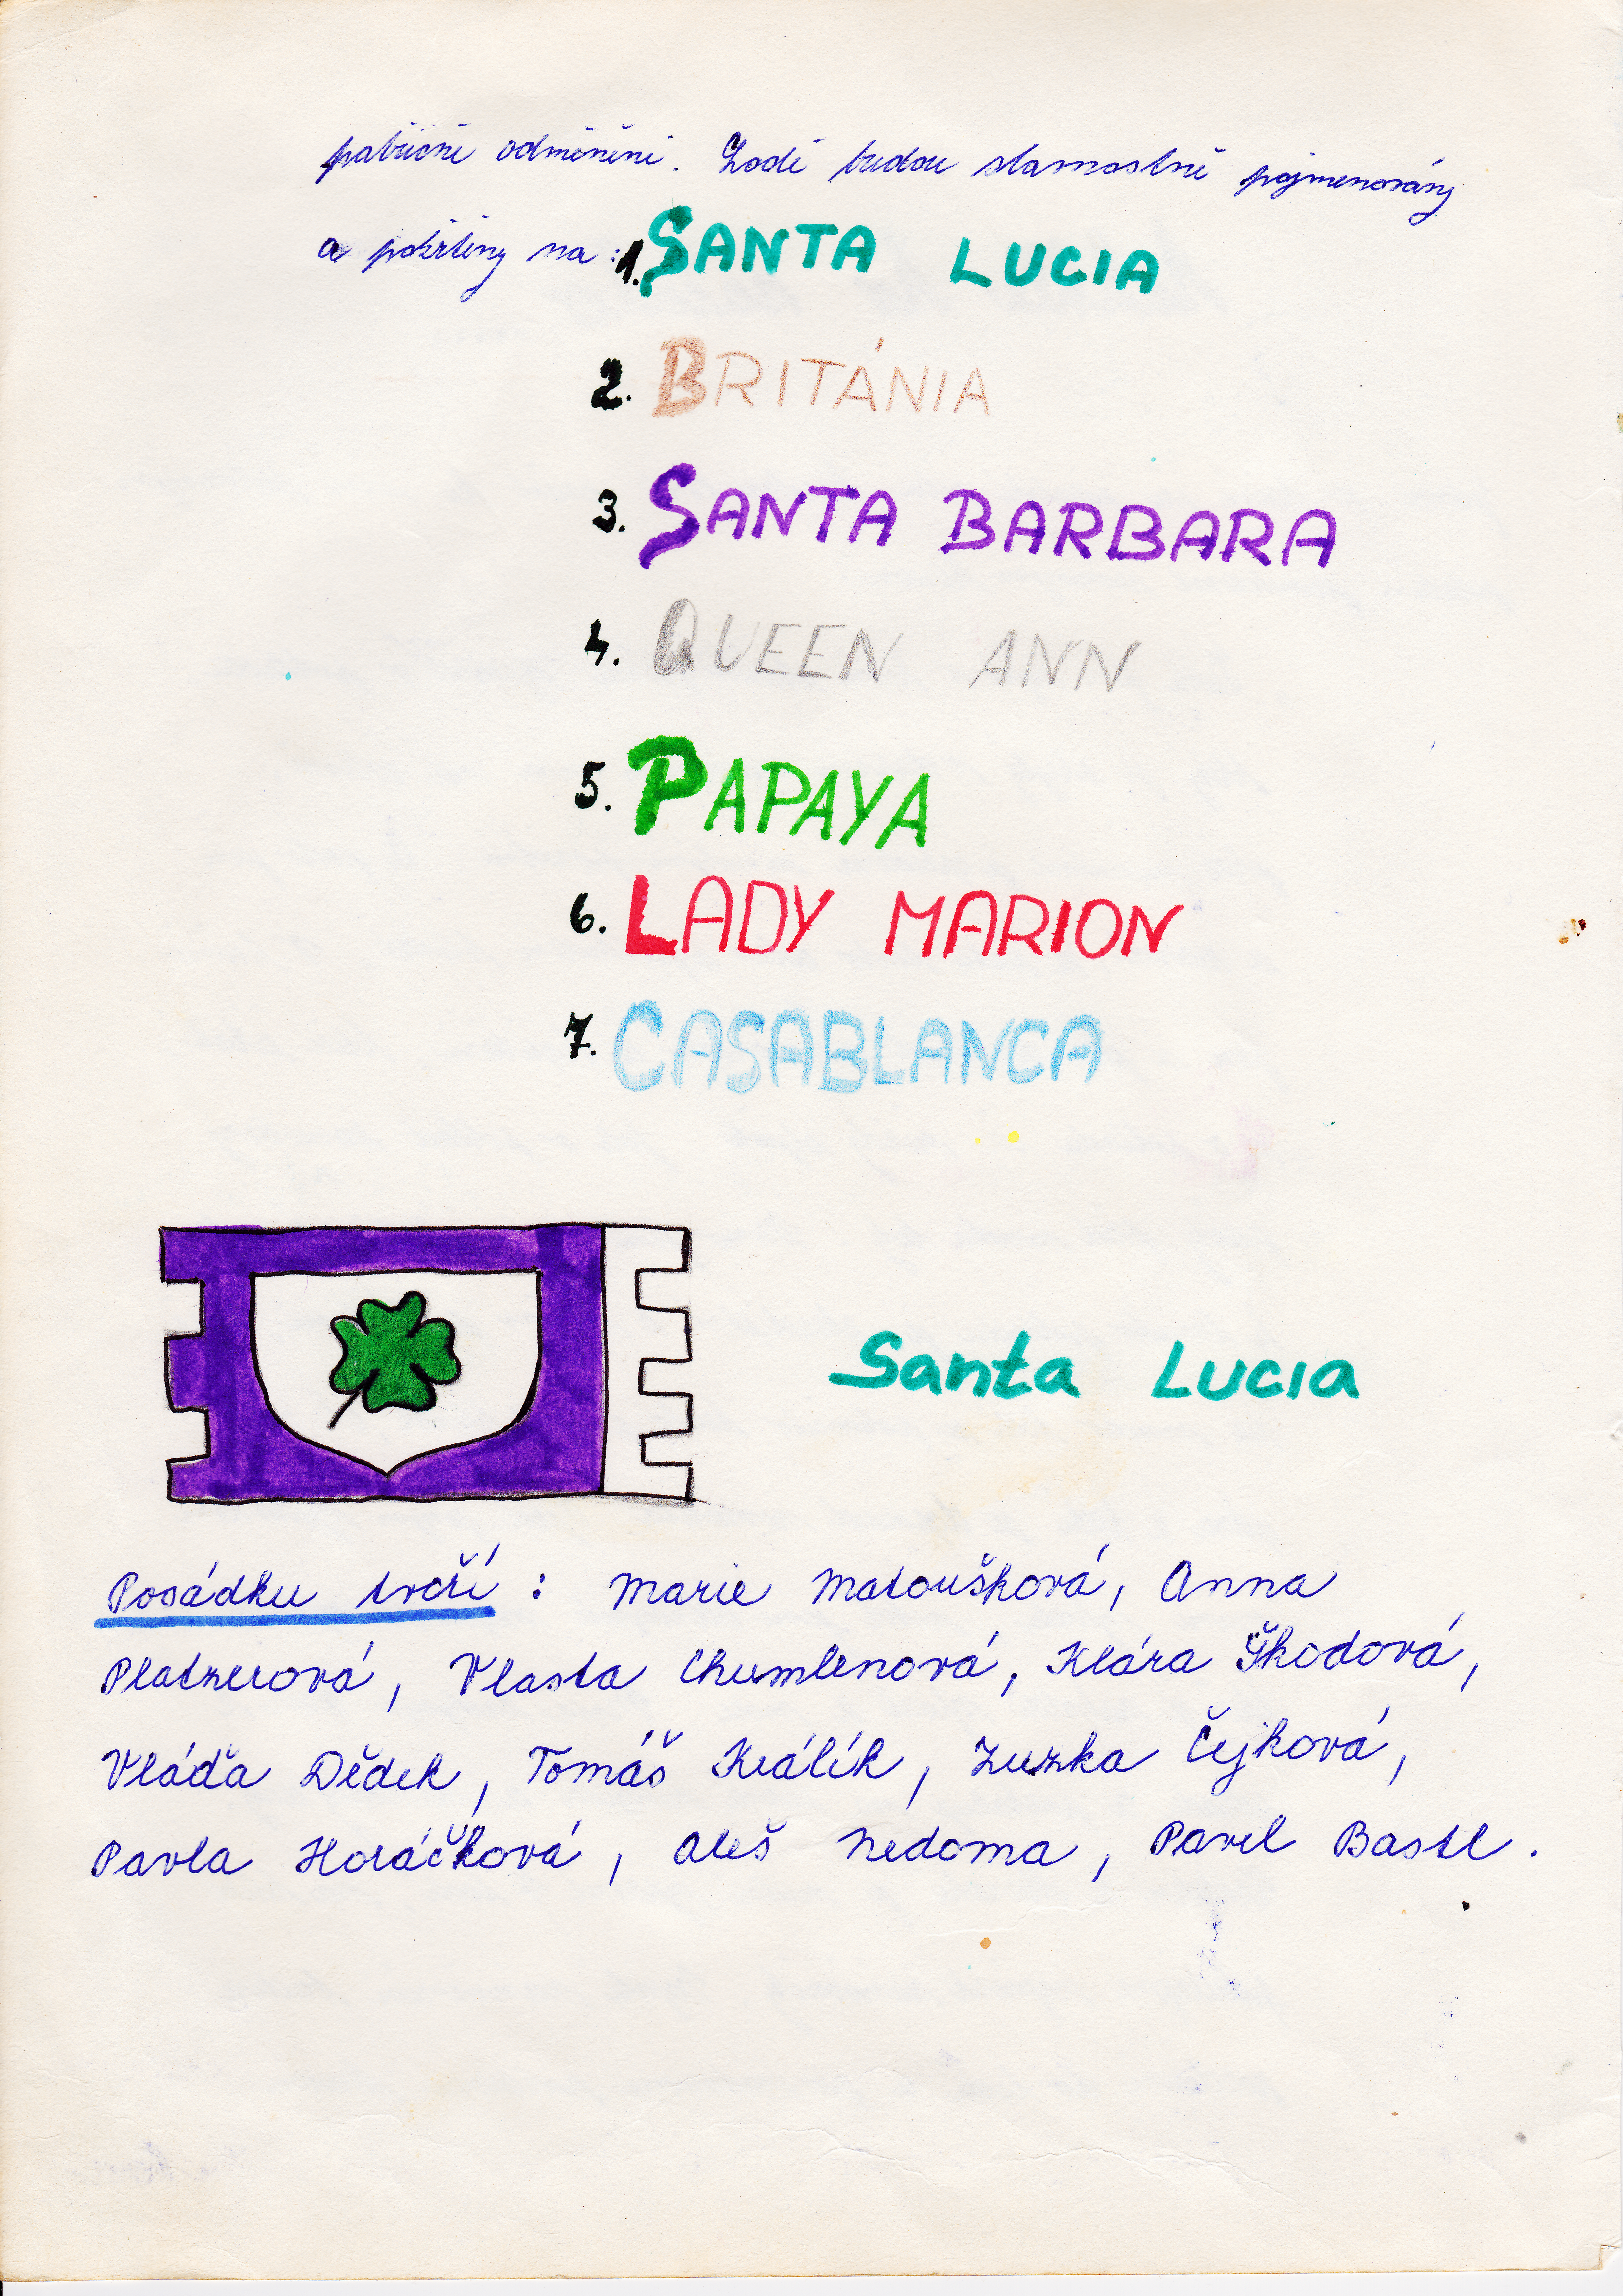 patřičně odměněni. Lodě budou slavnostně pojmenovány
a pokřtěny na :
1. SANTA LUCIA
2. BRITÁNIA
3. SANTA BARBARA
4. QUEEN ANN
5. PAPAYA
6. LADY MARION
7. CASABLANCA
Santa Lucia
Posádku tvoří : Marie Matoušková, Anna
Platzerová, Vlasta Chumlenová, Klára Škodová,
Vláďa Dědek, Tomáš Králík, Zuzka Čejková,
Pavla Horáčková, Aleš Nedoma, Pavel Bastl.